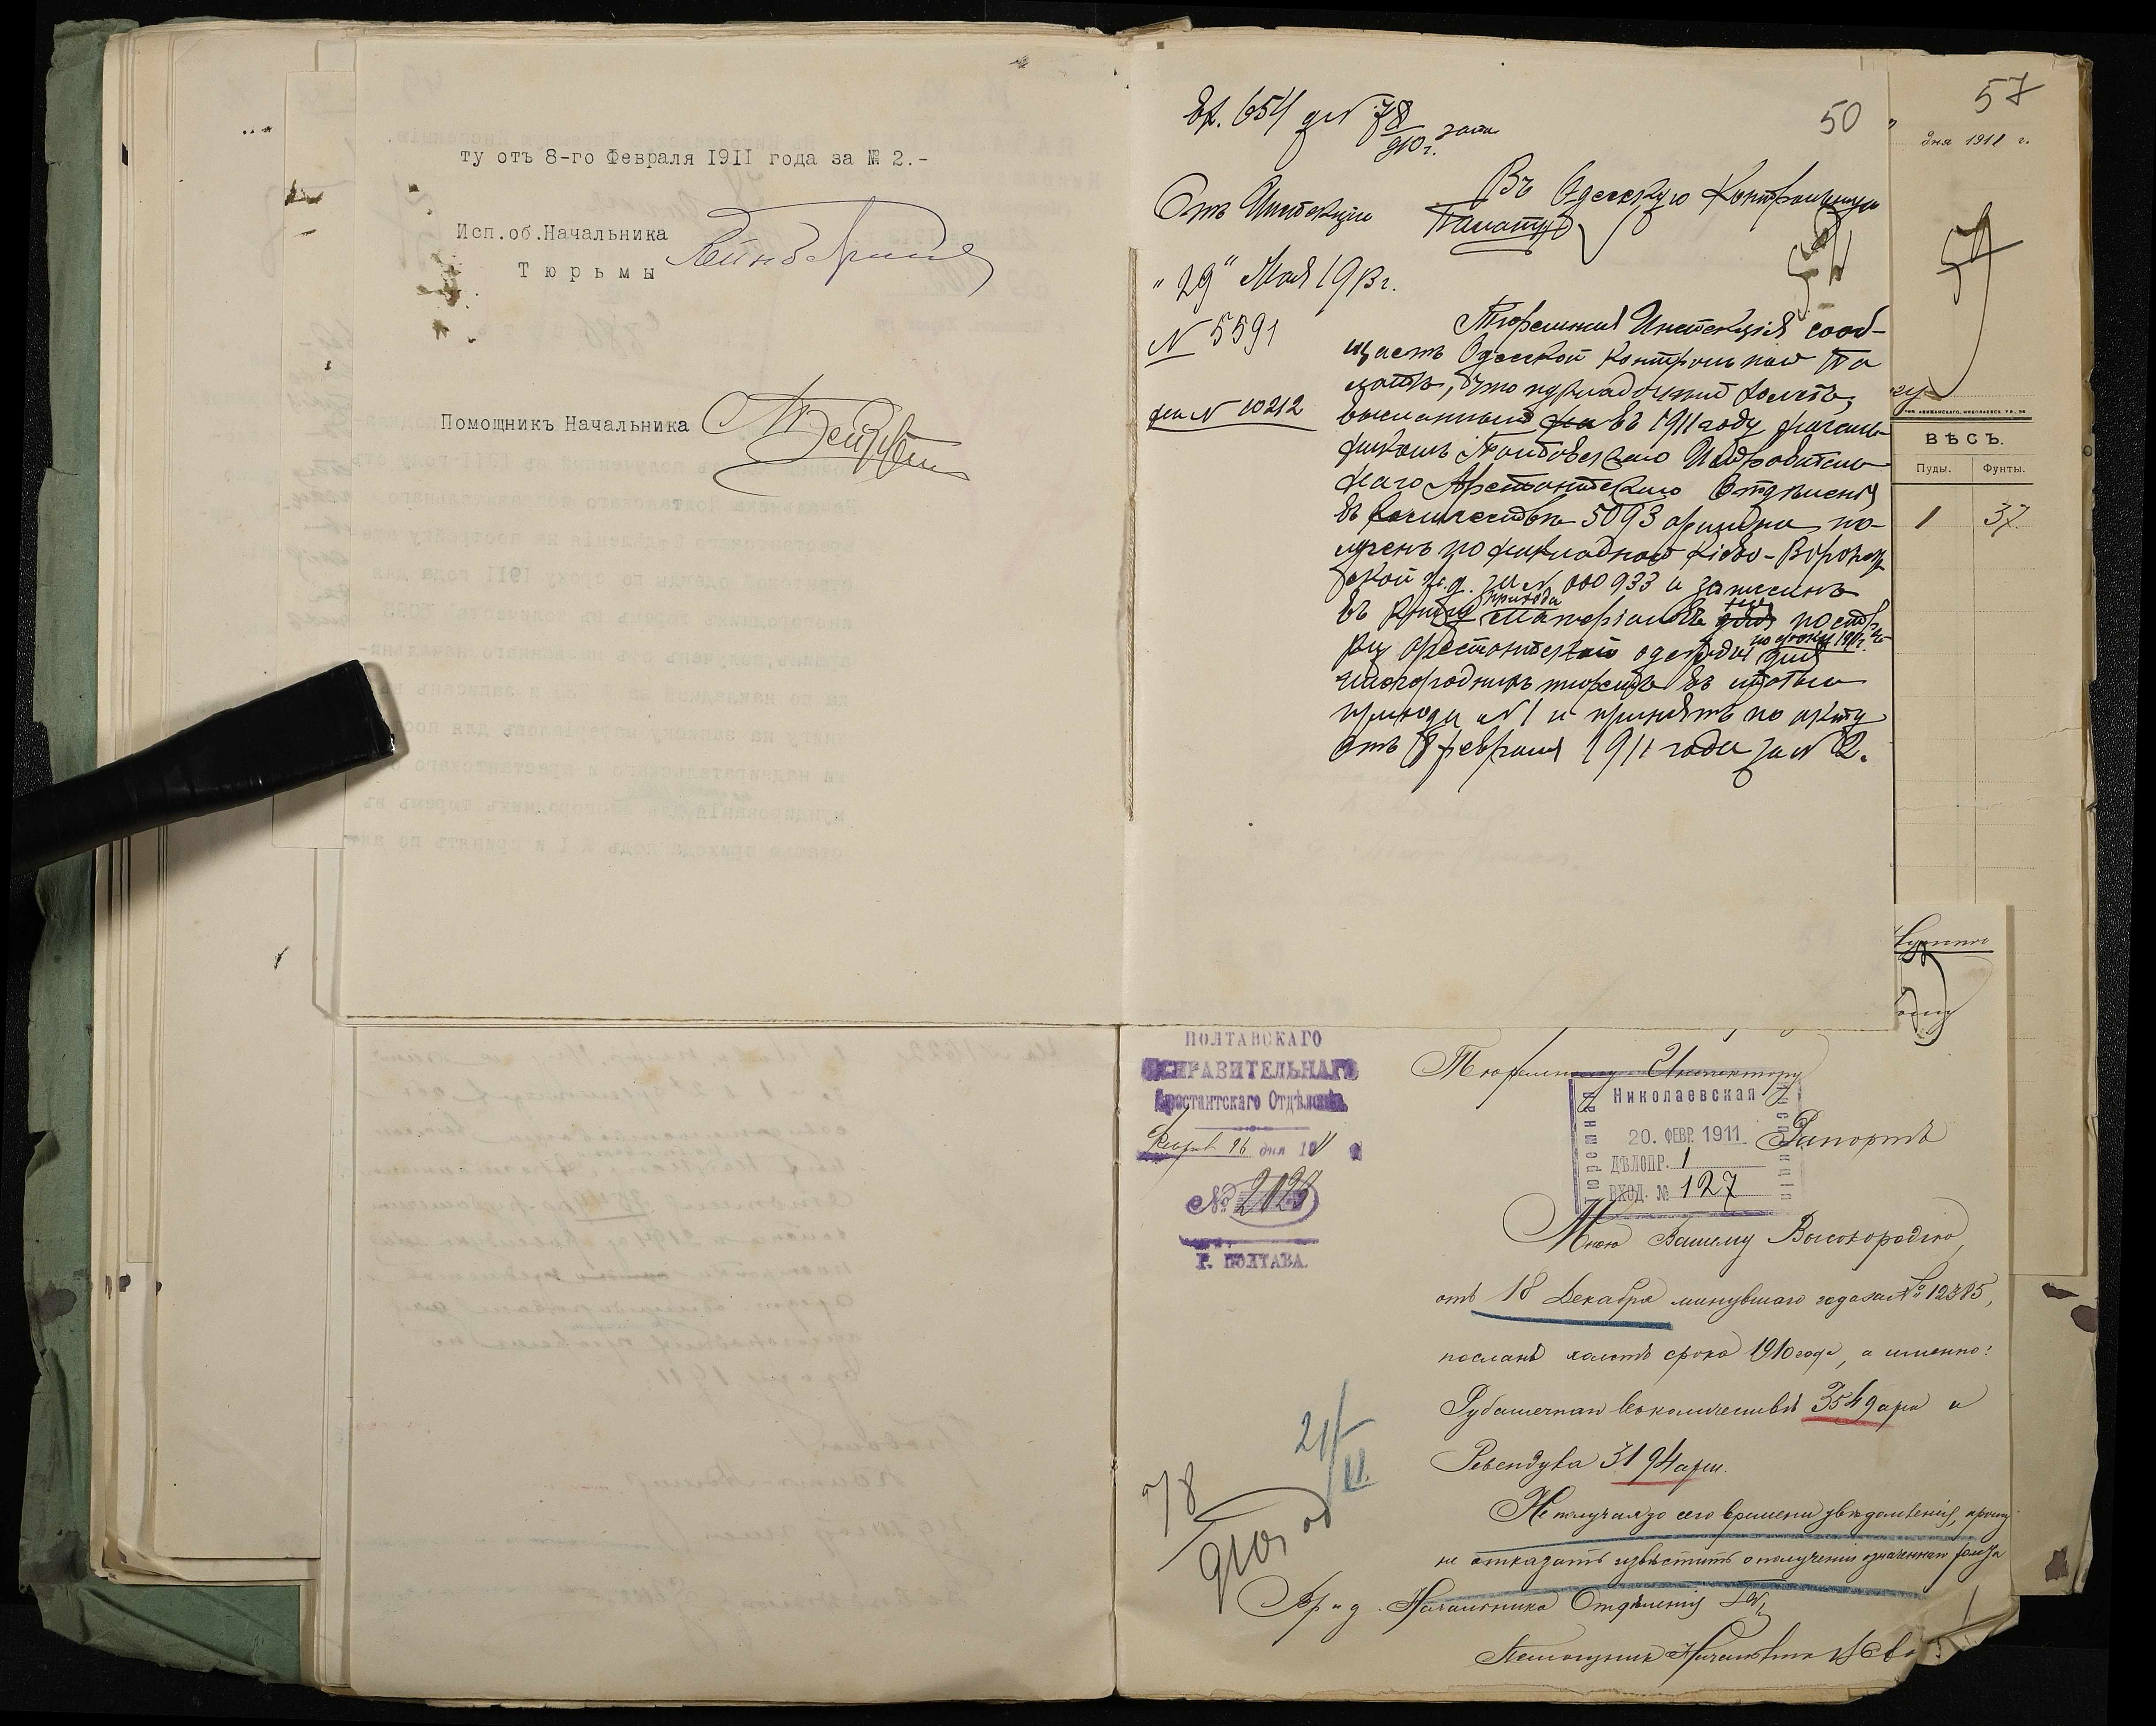 ту отъ 8-го Февраля 1911 года за № 2.-
Исп.об.Начальника
Тюрьмы
Помощникъ Начальника
50
Вр. 654 д № 78/910 г.
Отъ Инспекціи
Въ Одесскую Контрольную
Палату
"29" Мая 1913 г.
№ 5591
на № 10212
Тюремная Инспекція сооб-
щаетъ Одесской Контрольной Па
латѣ, что подкладочный холстъ,
высланный въ 1911 году Началь
никомъ Полтавскаго Исправитель
наго Арестантскаго Отдѣленія
въ количествѣ 5093 аршина по-
лученъ по накладной Кіево-Воронеж
ской ж.д. за № 000933 и записанъ
въ книгу прихода матеріаловъ на построй
ку арестантской одежды по сроку 1911 г. для
иногороднихъ тюремъ въ статью
прихода № 1 и принятъ по акту
отъ 8 февраля 1911 года за № 2.
57
дня 1911 г.
57
ВѢСЪ.
Пуды. Фунты.
1 37
ПОЛТАВСКАГО
ИСПРАВИТЕЛЬНАГО
Арестантскаго Отдѣленія
Февр. 16 дня 1911
№ 2023
Г. ПОЛТАВА.
Тюремному Инспектору
Николаевская
Тюремная
Инспекція
20. ФЕВР. 1911
ДѢЛОПР. 1
ВХОД. № 127
Рапортъ
Мною Вашему Высокородію,
отъ 18 Декабря минувшаго года за № 12385,
посланъ холстъ срока 1910 года, а именно:
Рубашечнаго въ количествѣ 3549 арш и
Равендука 3194 арш.
Не получая до сего времени увѣдомленія, прошу
не отказать извѣстить о полученіи означеннаго холста
21/II
78
910
Вр и д. Начальника Отдѣленія
Помощникъ Начальника